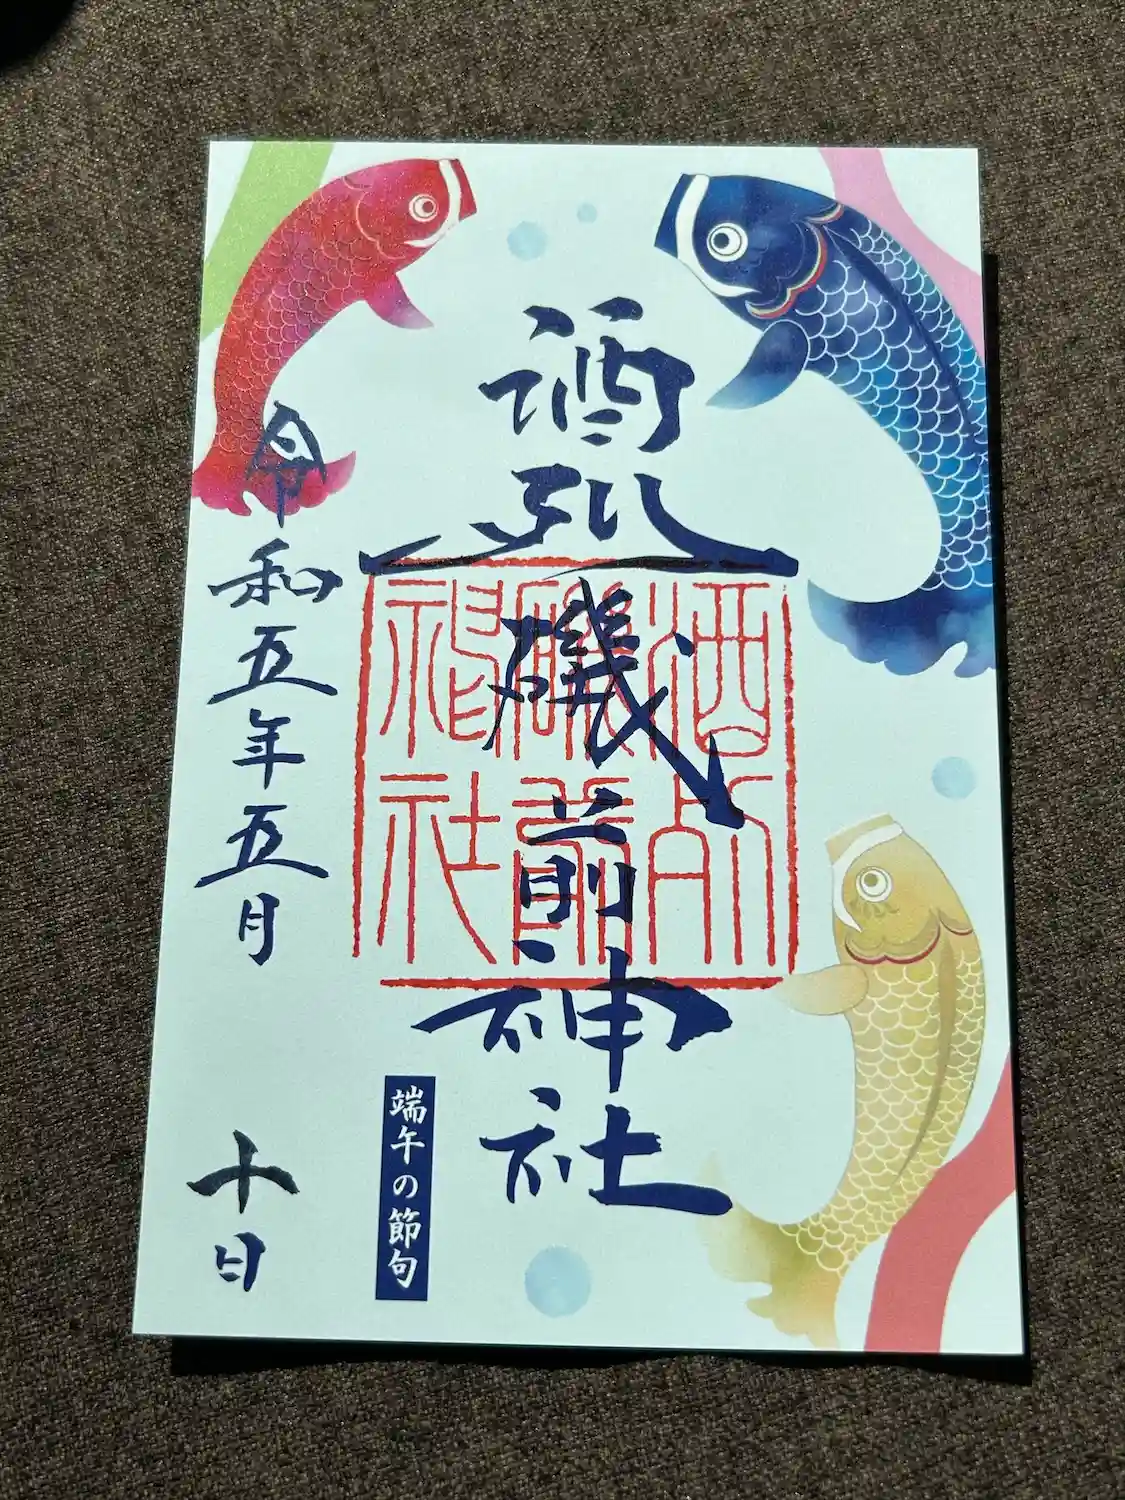 酒列磯前神社
酒列
磯前
神社
端午の節句
令和五年五月十日